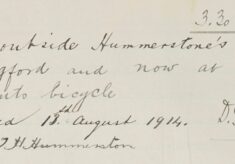 3.30
outside Hummerstone's
gford and now at
auto bicycle
ed 13th August 1914.
D.
J. H. Hummerston